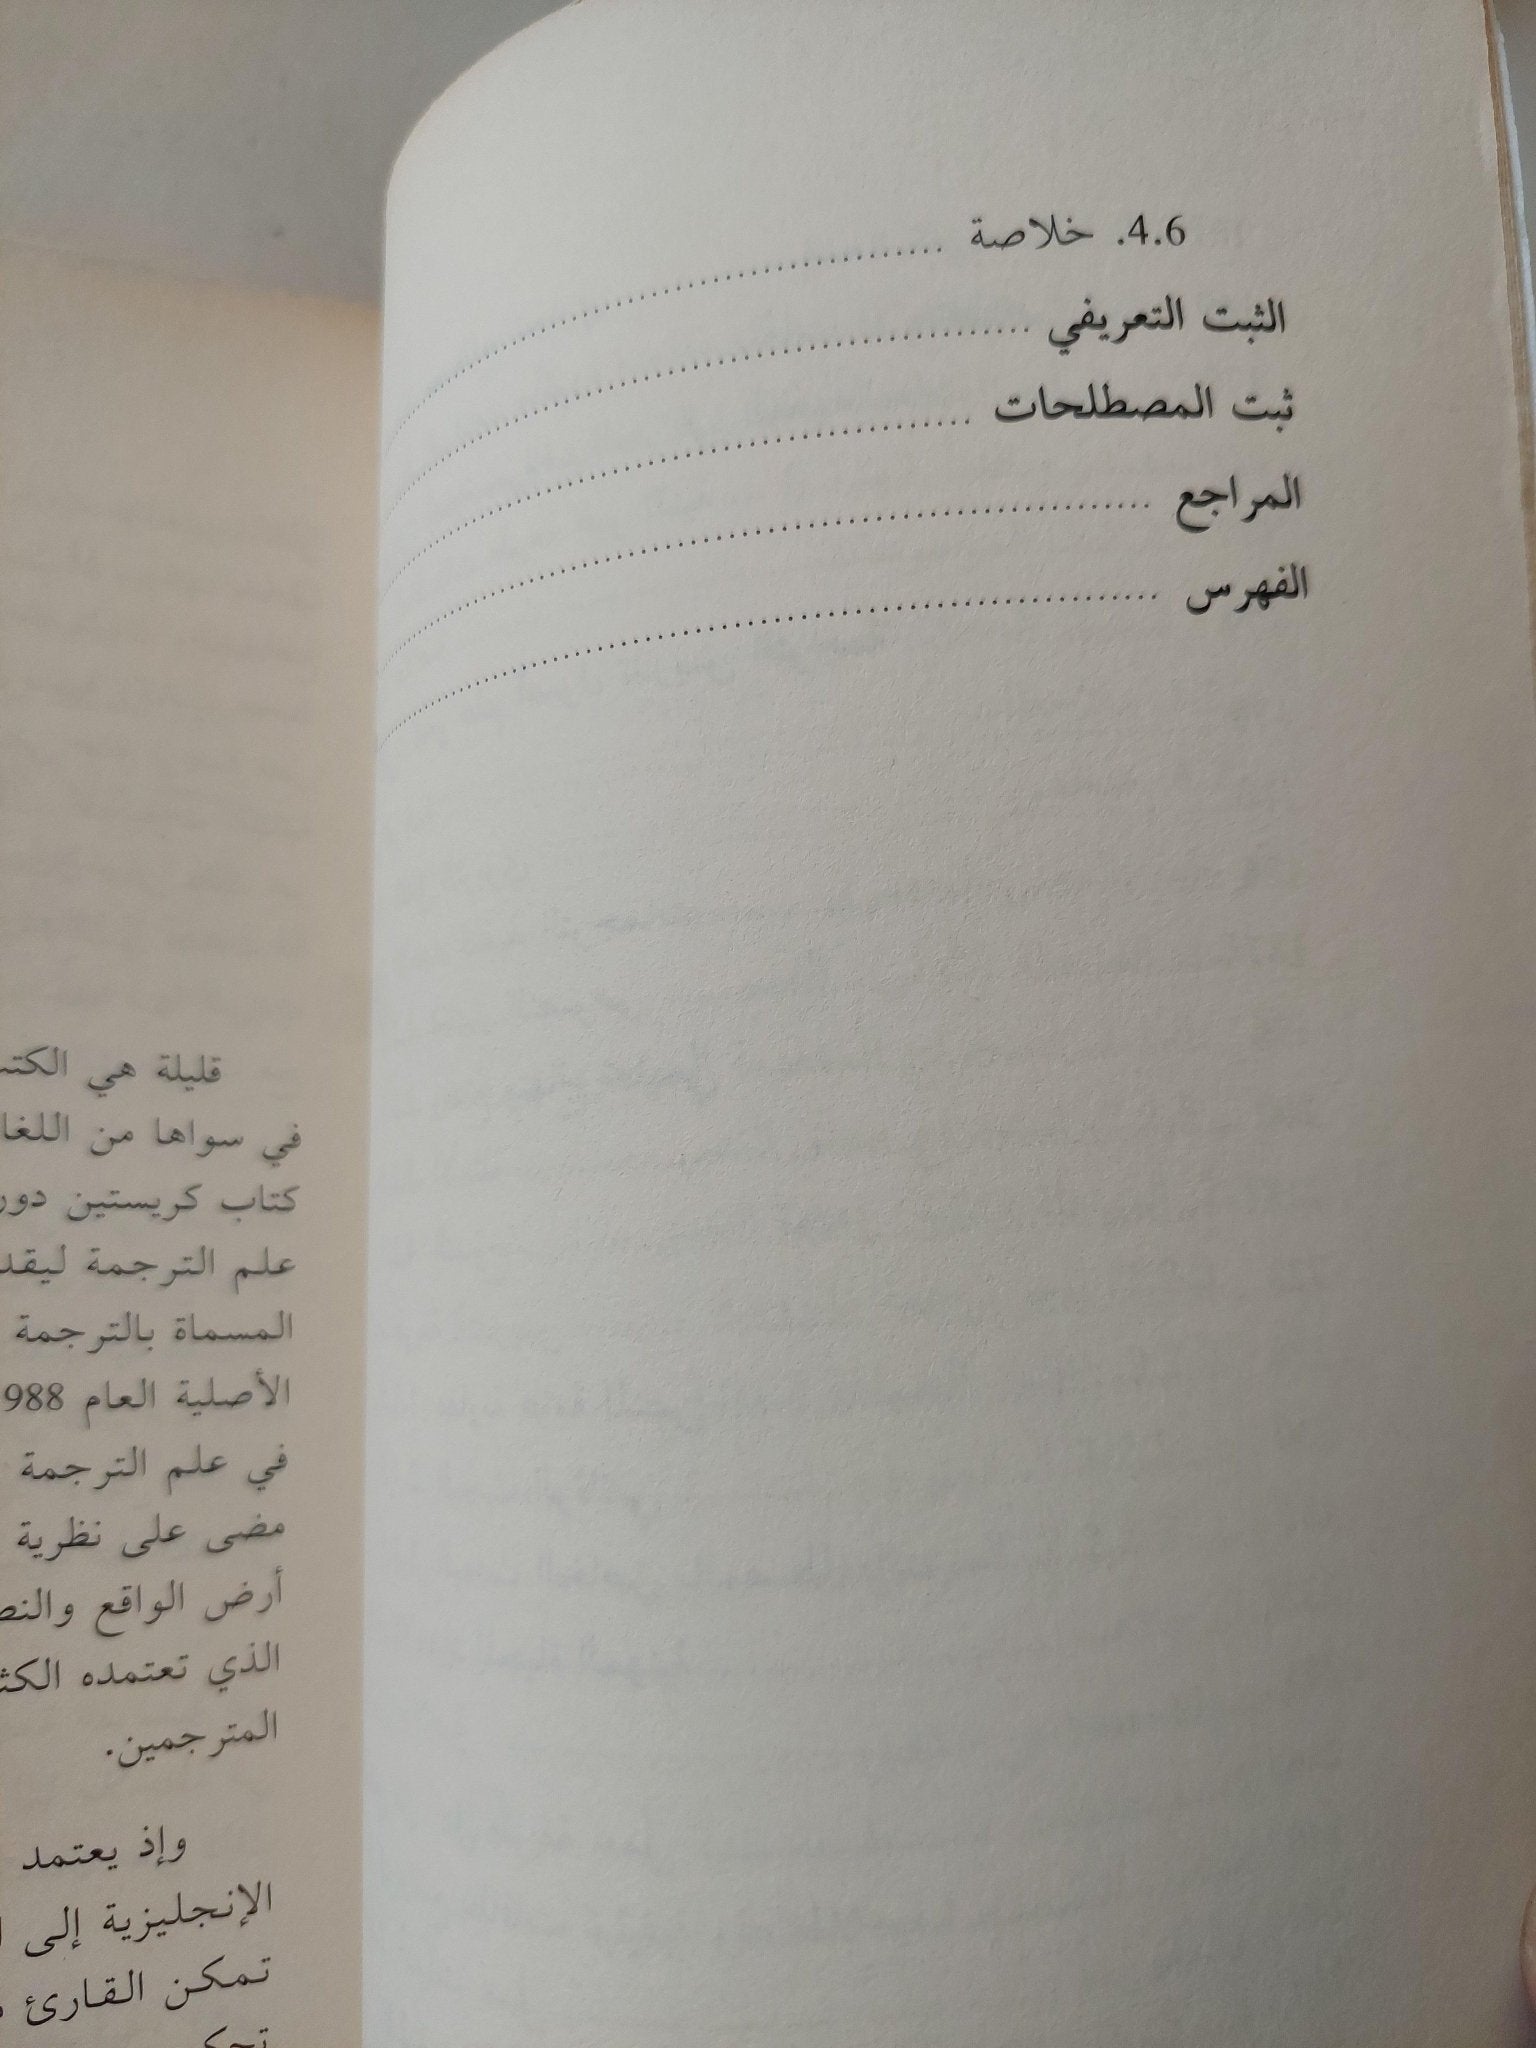 4.6. خلاصة ..........................
الثبت التعريفي ..........................
ثبت المصطلحات ..........................
المراجع ..........................
الفهرس ..........................
قليلة هي
في سواها من
كتاب كريستين
علم الترجمة
المسماة بالترجمة
الأصلية العام
في علم الترجمة
مضى على نظرية
أرض الواقع
الذي تعتمده
المترجمين.
وإذ يعتمد
الإنجليزية إلى
تمكن القارئ